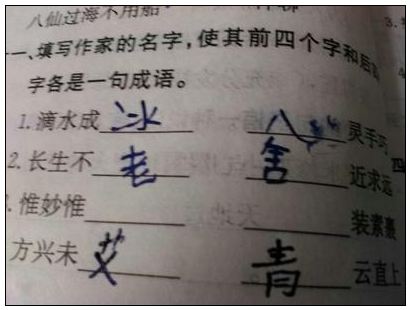 八仙过海不用船
一、填写作家的名字，使其前四个字和后
字各是一句成语。
1.滴水成 冰 灵手巧
2.长生不 老 舍 近求远
惟妙惟 装素裹
方兴未 艾 青 云直上